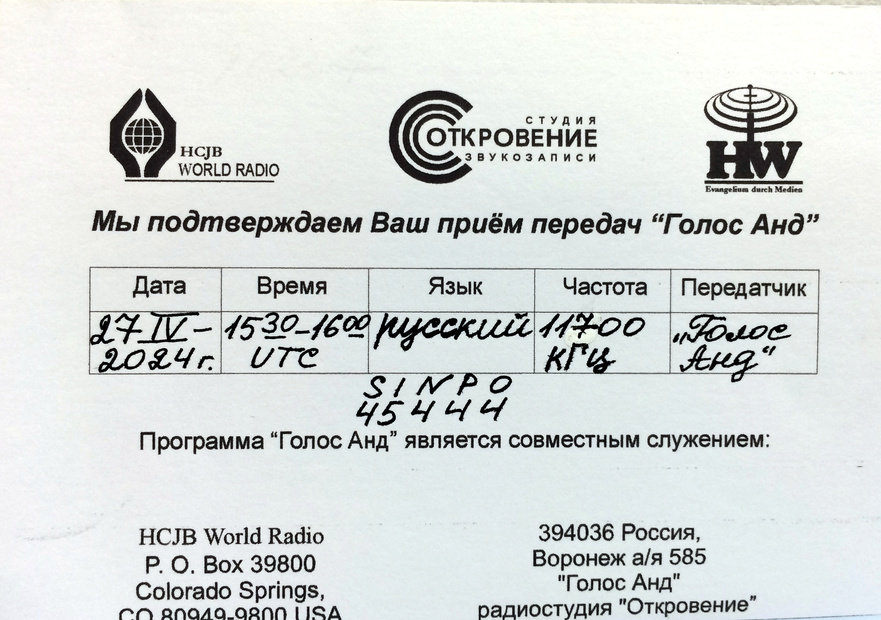 HCJB
WORLD RADIO
СТУДИЯ
ОТКРОВЕНИЕ
ЗВУКОЗАПИСИ
HW
Evangelium durch Medien
Мы подтверждаем Ваш приём передач “Голос Анд”
Дата Время Язык Частота Передатчик
27 IV- 15 30-16 00 русский 11700 „Голос
2024г. UTC КГц Анд“
SINPO
45444
Программа “Голос Анд” является совместным служением:
HCJB World Radio
P. O. Box 39800
Colorado Springs,
CO 80949-9800 USA
394036 Россия,
Воронеж а/я 585
"Голос Анд"
радиостудия "Откровение"